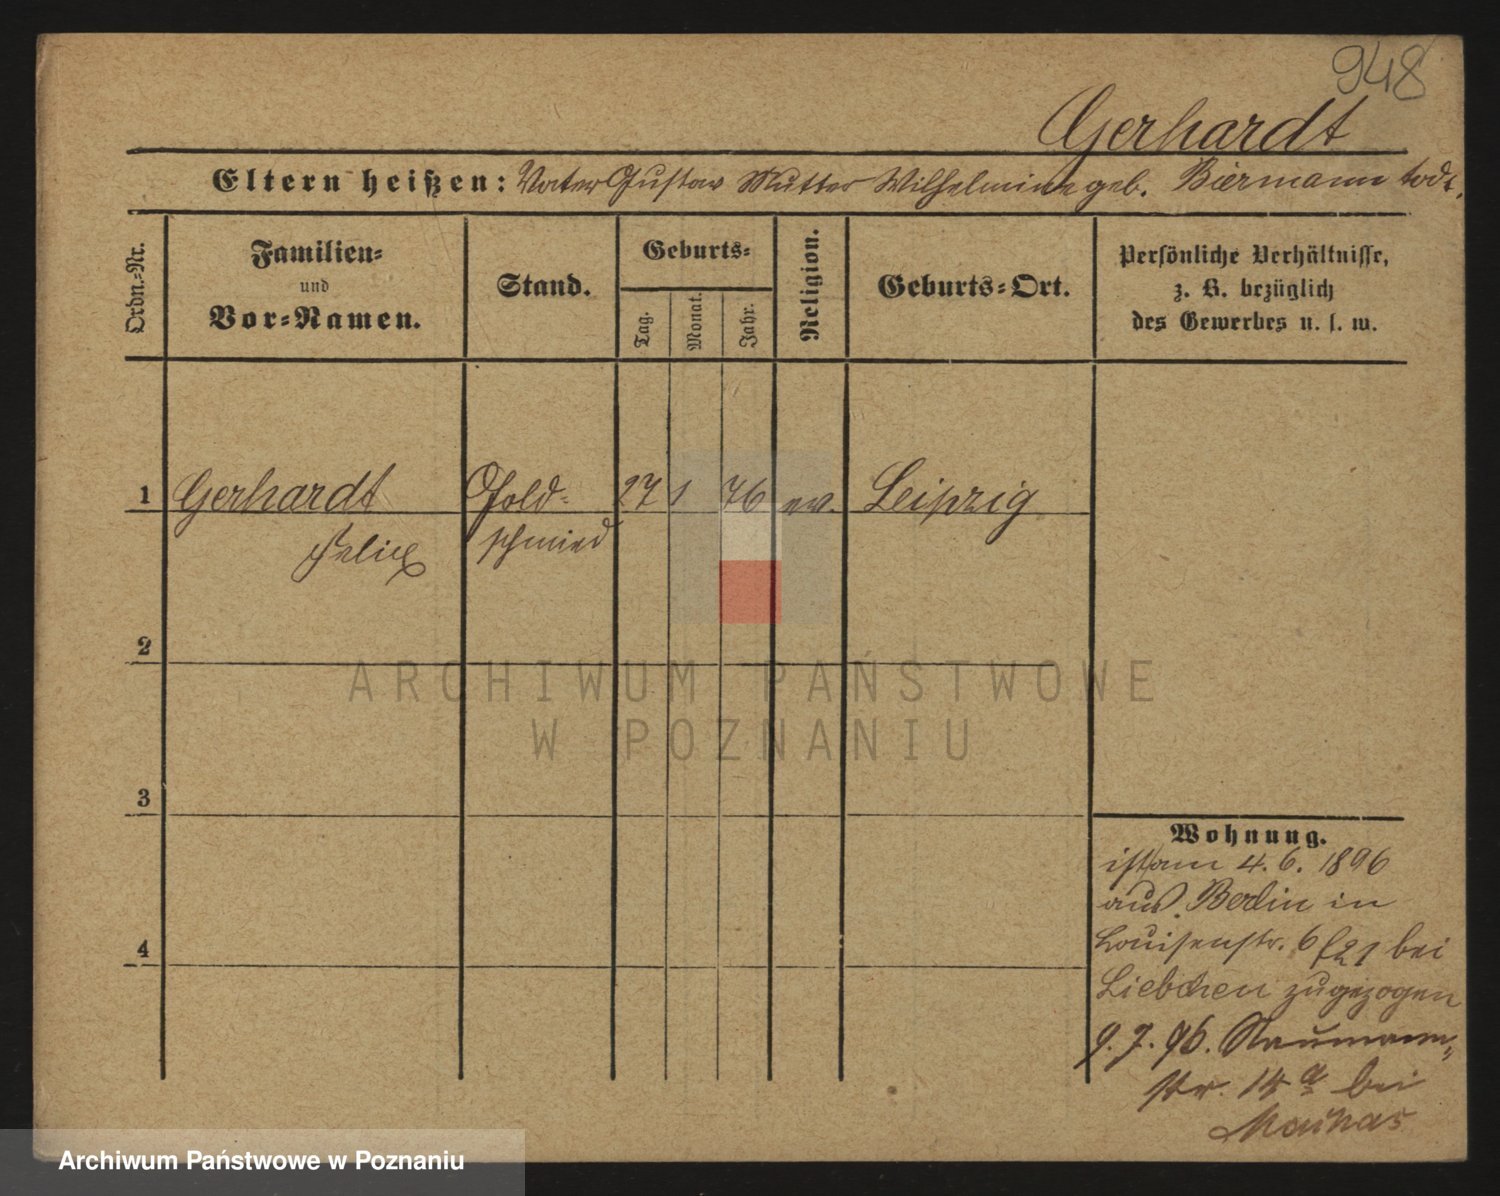 948
Gerhardt
Eltern heißen: Vater Gustav Mutter Wilhelmine geb. Biermann todt.
Ordn.-Nr.
Familien-
und
Vor-Namen.
Stand.
Geburts-
Tag.
Monat.
Jahr.
Religion.
Geburts-Ort.
Persönliche Verhältnisse,
z. B. bezüglich
des Gewerbes u. s. w.
1 Gerhardt Gold- 27 1 76 ev. Leipzig
Felix schmied
2
3
4
Wohnung.
ist am 4. 6. 1896
aus Berlin in
Louisenstr. 6 bei
Liebchen zugezogen
9. 7. 96. Naumann-
str. bei
ARCHIWUM PAŃSTWOWE
W POZNANIU
Archiwum Państwowe w Poznaniu